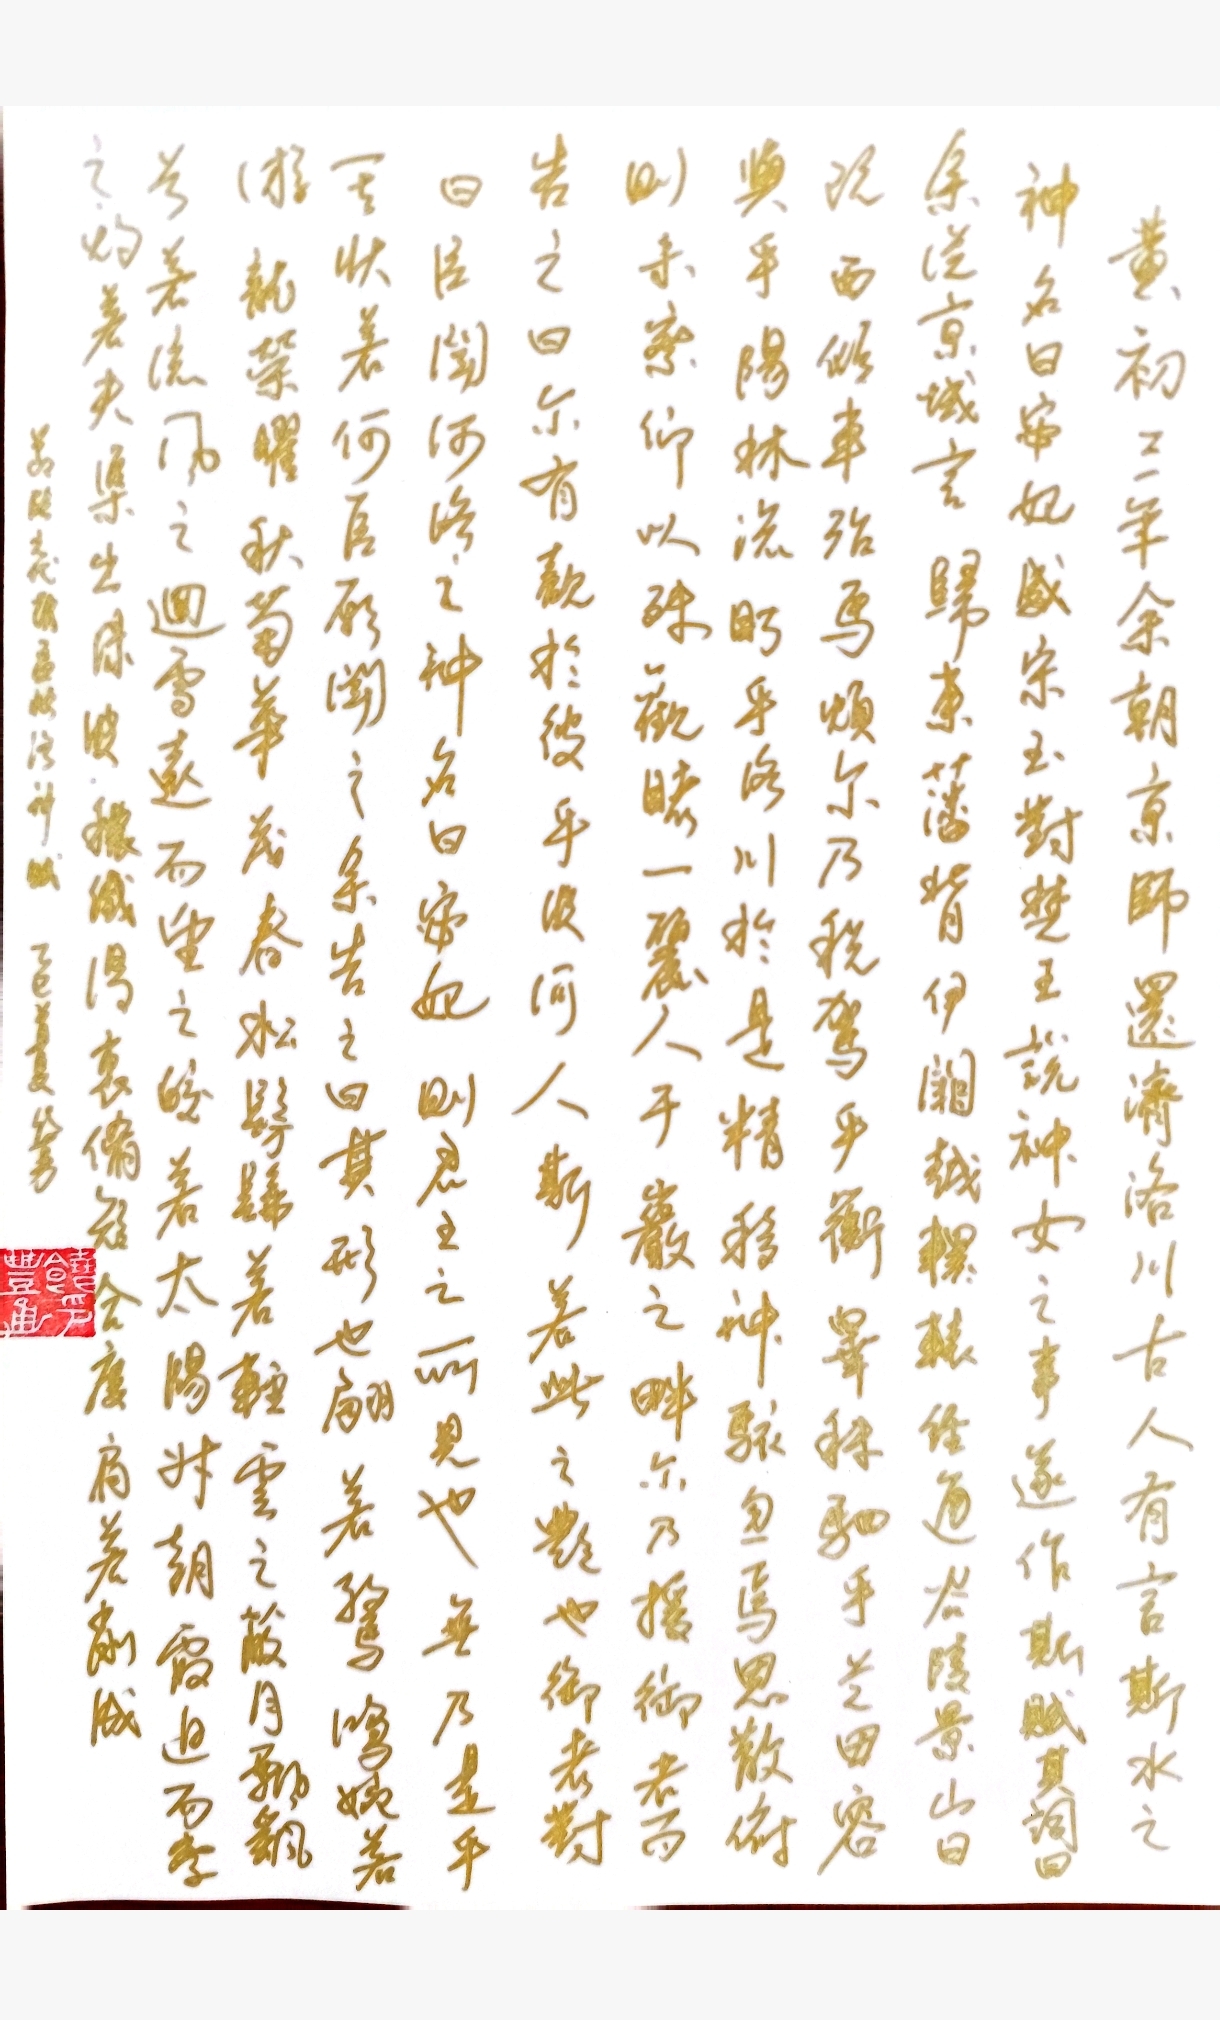 黃初三年余朝京師還濟洛川古人有言斯水之
神名曰宓妃感宋玉對楚王說神女之事遂作斯賦其詞曰
余從京域言歸東藩背伊闕越轘轅經通谷陵景山日
既西傾車殆馬煩尔乃税駕乎蘅皋秣駟乎芝田容
與乎陽林流眄乎洛川於是精移神駭忽焉思散俯
則未察仰以殊觀睹一麗人于巖之畔尔乃援御者而
告之曰尔有觀於彼乎彼何人斯若此之艷也御者對
曰臣聞河洛之神名曰宓妃則君王之所見也無乃是乎
其狀若何臣願聞之余告之曰其形也翩若驚鴻婉若
游龍榮曜秋菊華茂春松髣髴若輕雲之蔽月飄颻
兮若流風之迴雪遠而望之皎若太陽升朝霞迫而察
之灼若夫渠出淥波穠纖得衷脩短合度肩若削成
洛神賦 乙巳夏